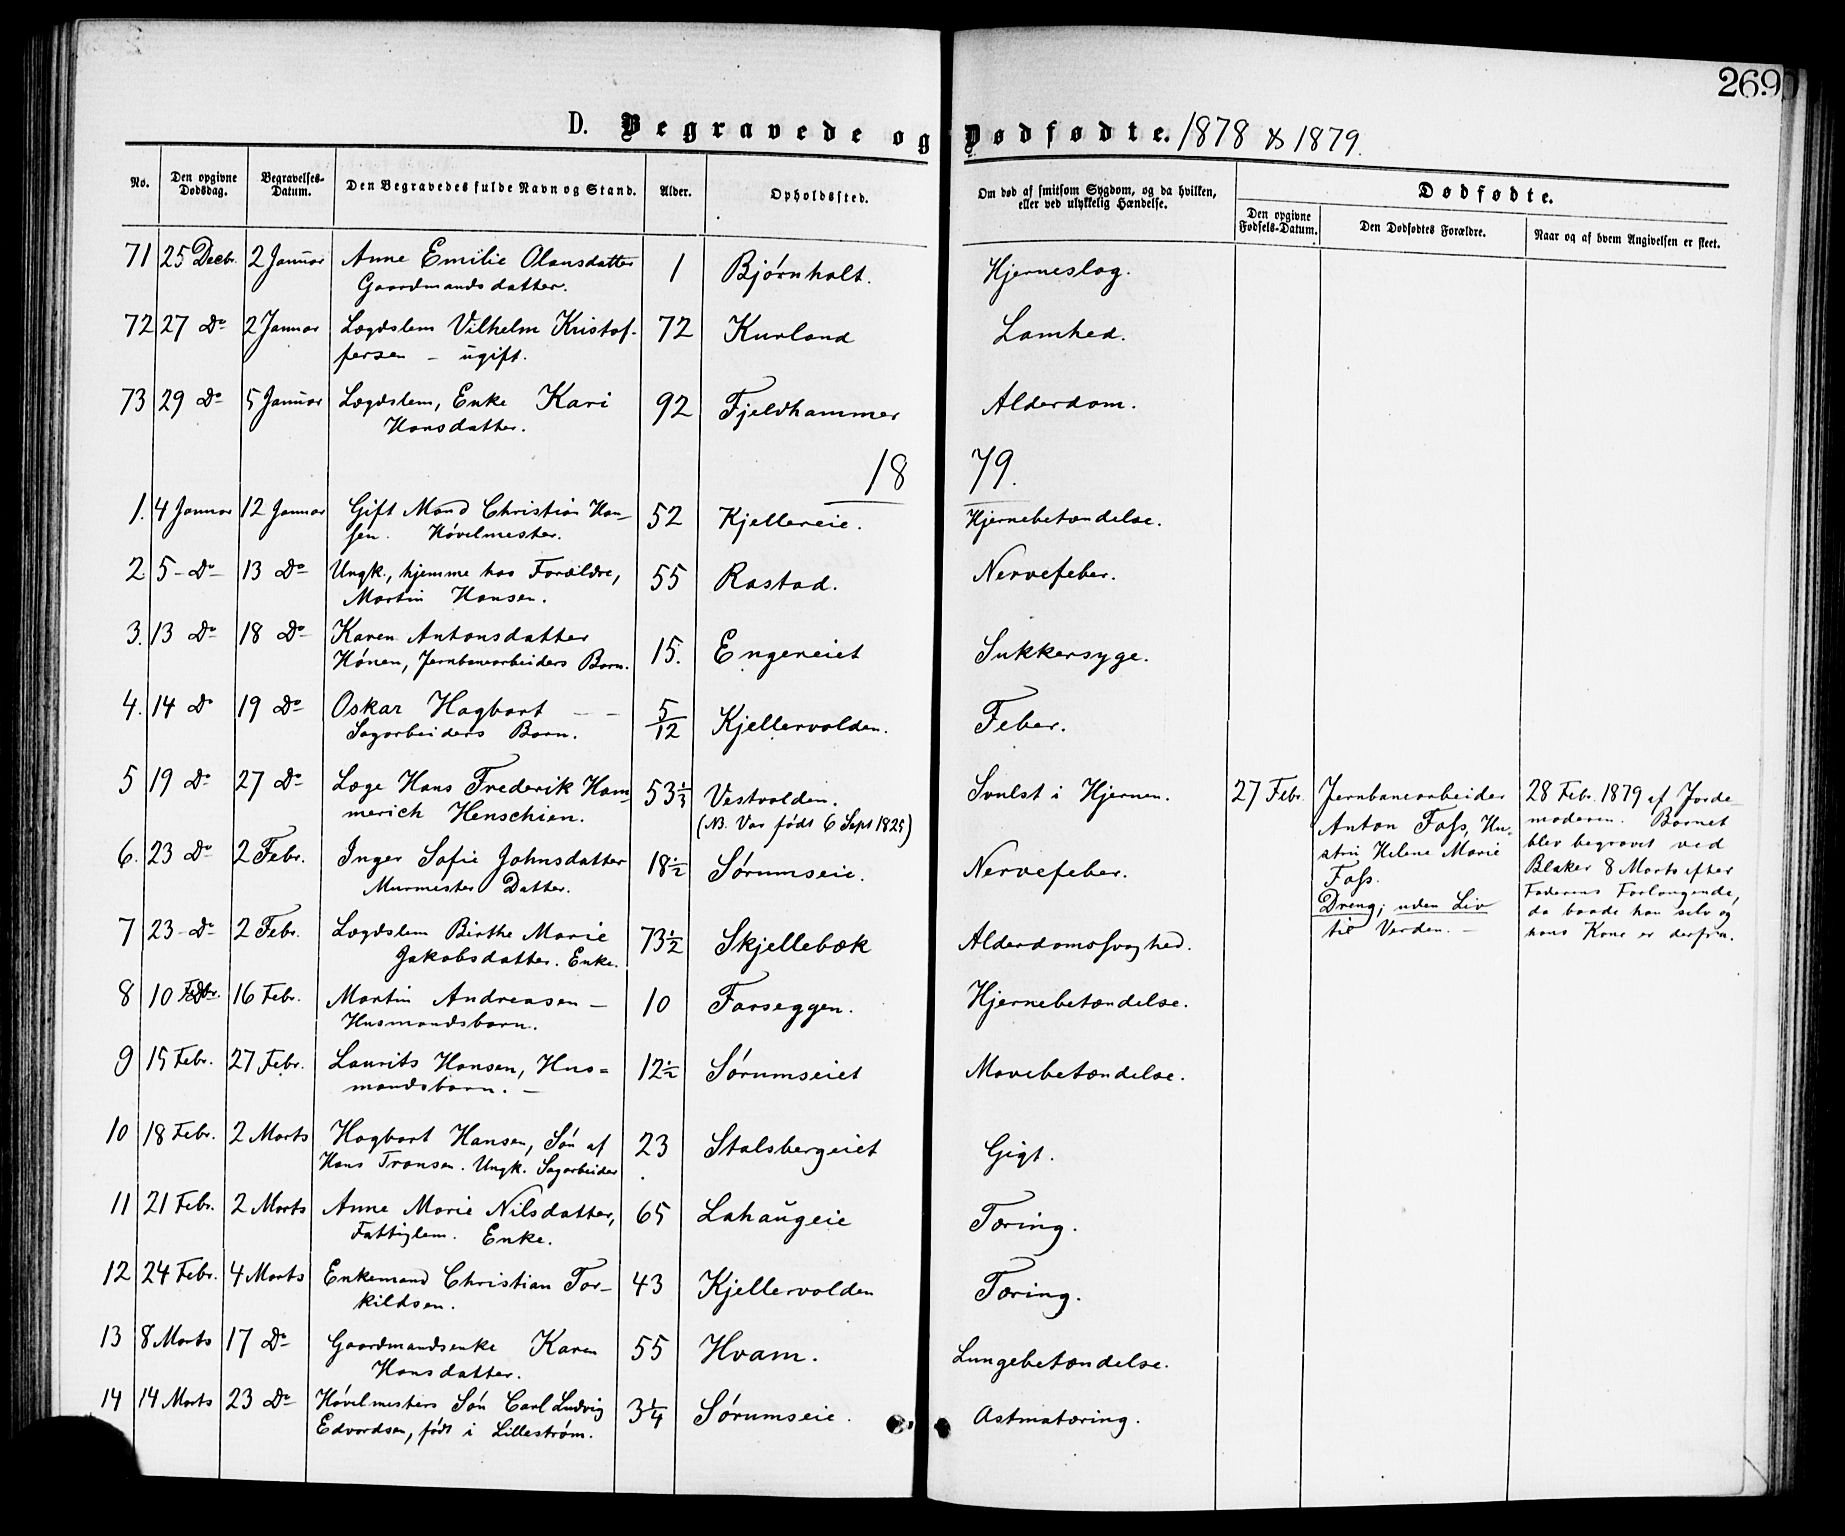 269
D. Begravede og Dødfødte. 1878 & 1879.
No.
Den opgivne Dødsdag.
Begravelses-Datum.
Den Begravedes fulde Navn og Stand.
Alder.
Opholdssted.
Om død af smitsom Sygdom, og da hvilken, eller ved ulykkelig Hændelse.
Dødfødte.
Den opgivne Fødsels-Datum.
Den Dødfødtes Forældre.
Naar og af hvem Angivelsen er skeet.
71 25 Decbr. 2 Januar Anne Emilie Olausdatter 1 Bjørnholt. Hjerneslag.
Gaardmandsdatter.
72 27 Do 2 Januar Lægdslem Vilhelm Kristof- 72 Kurland Lamhed.
fersen – ugift.
73 29 Do 5 Januar Lægdslem, Enke Kari 92 Fjeldhammer Alderdom.
Hansdatter.
18 79.
1. 4 Januar 12 Januar Gift Mand Christian Han- 52 Kjellereie. Hjernebetændelse.
sen. Høvelmester.
2 5 – Do – 13 Do Ungk., hjemme hos Forældre, 55 Rastad. Nervefeber.
Martin Hansen.
3. 13 Do 18 Do Karen Antonsdatter 15. Engereiet Sukkersyge.
Hønen, Jernbanearbeiders Barn.
4. 14 Do 19 Do Oskar Hagbart – – 5/12 Kjellervolden. Feber.
Sagarbeiders Barn.
5 19 Do 27 Do Læge Hans Frederik Ham- 53 1/3 Vestvolden. Svulst i Hjernen.
merich Henschien. (NB. Var født 6 Sept 1825)
27 Febr. Jernbanearbeider
Anton Foss, Hu-
stru Helene Marie
Foss.
Dreng; uden Liv
til Verden. –
28 Febr. 1879 af Jorde-
moderen. Barnet
blev begravet ved
Blaker 8 Marts efter
Faderens Forlangende,
da baade han selv og
hans Kone er derfra.
6. 23 Do 2 Febr. Inger Sofie Johnsdatter 18 1/2 Sørumseie. Nervefeber.
Murmester Datter.
7 23 – Do 2 Febr. Lægdslem Birthe Marie 73 1/2 Skjellebæk Alderdomssvaghed.
Jakobsdatter. Enke.
8 10 Febr. 16 Febr. Martin Andreasen – 10 Farseggen. Hjernebetændelse.
Husmandsbarn.
9 15 Febr. 27 Febr. Laurits Hansen, Hus- 12 1/2 Sørumseiet Mavebetændelse.
mandsbarn. –
10 18 Febr. 2 Marts Hagbart Hansen, Søn af 23 Stalsbergeiet Gigt.
Hans Transen. Ungk. Sagarbeider
11 21 Febr. 2 Marts Anne Marie Nilsdatter, 65 Lahaugeie Tæring.
Fattiglem. Enke.
12 24 Febr. 4 Marts Enkemand Christian Tor- 43 Kjellervolden Tæring.
kildsen.
13 8 Marts 17 Do Gaardmandsenke Karen 55 Hvam. Lungebetændelse.
Hansdatter.
14 14 Marts 23 Do Høvelmesters Søn Carl Ludvig 3 1/4 Sørumseie. Astmatæring.
Edvardsen, født i Lillestrøm.